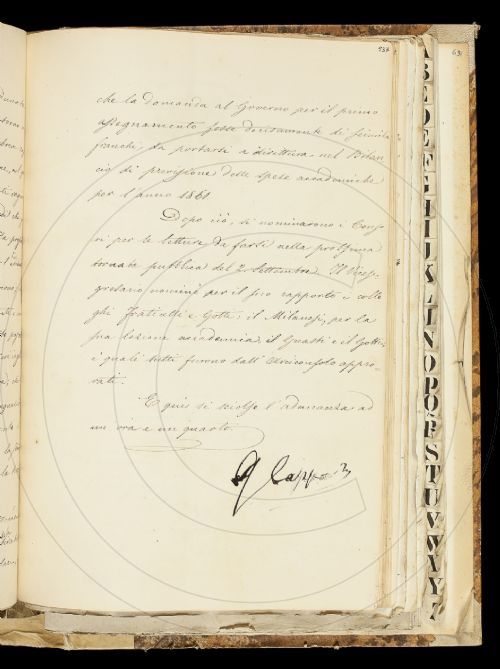 934
che la domanda al Governo per il primo
assegnamento fosse di seimila
franchi, da portarsi a dirittura nel Bilan
cio di previsione delle spese accademiche
per l'anno 1861
Dopo ciò, si nominarono i Censo
ri per le letture da farsi nella prossima
tornata pubblica del 2 Settembre. Il
gretario nominò per il suo rapporto i colle
ghi Fraticelli e Gotti: il Milanesi, per la
sua lezione accademica, il Guasti e il Gotti,
i quali tutti furono dall'Arciconsolo appro-
vati.
E quì si sciolse l'adunanza ad
un ora e un quarto.
G Capponi
631
A
B
C
D
E
F
G
H
I
J
K
L
M
N
O
P
Q
R
S
T
U
V
W
X
Y
Z